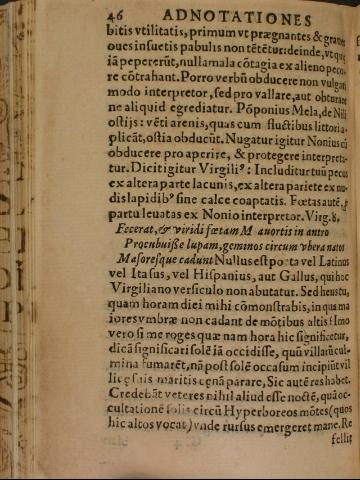 46 ADNOTATIONES
bitis vtilitatis, primum vt prægnantes & graues
oues insuetis pabulis non tētētur: deinde, vt quę
iā pepererūt, nulla mala cōtagia ex alieno peco-
re cōtrahant. Porro verbū obducere non vulgari
modo interpretor, sed pro vallare, aut obturare
ne aliquid egrediatur. Pōponius Mela, de Nili
ostijs: vēti arenis, quas cum fluctibus littori a-
plicāt, ostia obducūt. Nugatur igitur Nonius cū
obducere pro aperire, & protegere interpreta-
tur. Dicit igitur Virgili⁹: Includitur tuū pecus
ex altera parte lacunis, ex altera pariete ex nu-
dis lapidib⁹ sine calce coaptatis. Fœtas autē,
partu leuatas ex Nonio interpretor. Virg. 8,
Fecerat, & viridi fœtam M auortis in antro
Procubuisse lupam, geminos circum vbera natos
Maioresque cadunt Nullus est poeta vel Latinus
vel Italus, vel Hispanius, aut Gallus, qui hoc
Virgiliano versiculo non abutatur. Sed heus tu,
quam horam diei mihi cōmonstrabis, in qua ma
iores vmbræ non cadant de mōtibus altis? Imo
vero si me roges quæ nam hora hic significetur,
dicā significari solē iā occidisse, quū villarū cul-
mina fumarēt, nā post solē occasum incipiūt vil
lici suis maritis cęnā parare, Sic autē res habet.
Credebāt veteres nihil aliud esse noctē, quā oc-
cultationē solis circū Hyperboreos mōtes (quos
hic altos vocat) vnde rursus emergeret mane. Re
fellit